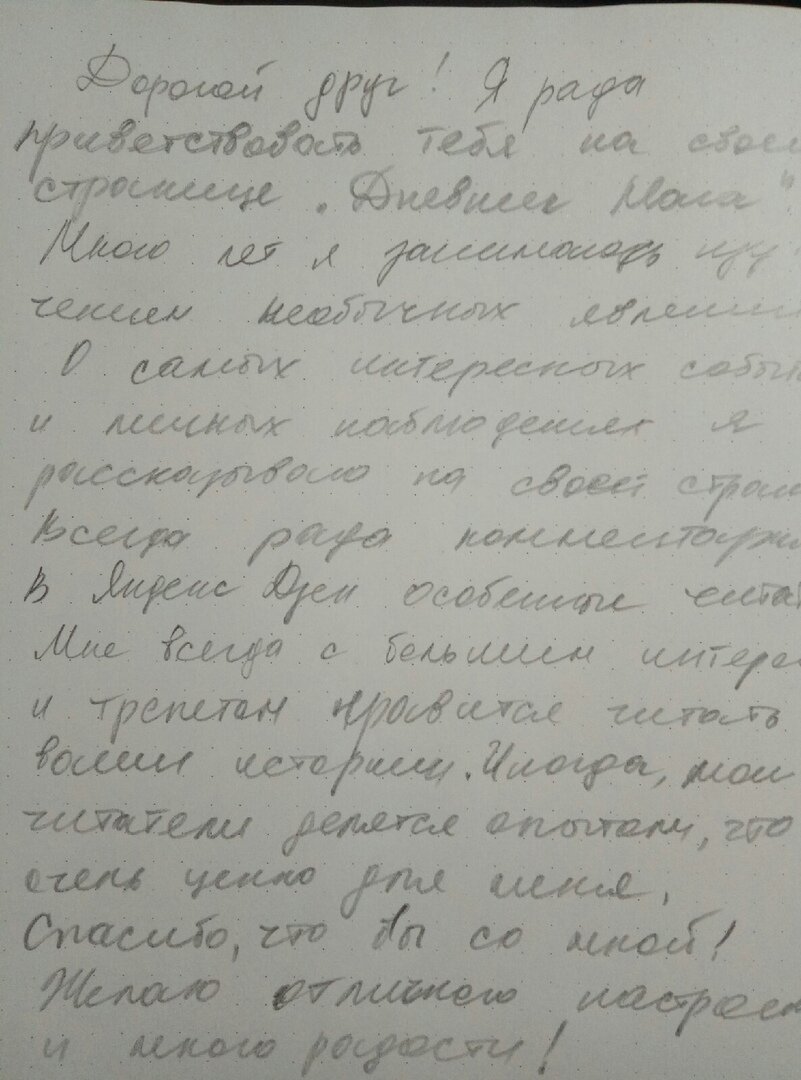 Дорогой друг! Я рада
приветствовать тебя на своей
странице „Дневник Мага"
Много лет я занималась изу-
чением необычных явлени
О самых интересных событ
и личных наблюдениях я
рассказываю на своей стран
Всегда рада комментари
В Яндекс Дзен особенные читат
Мне всегда с большим интере
и трепетом нравится читать
ваши истории. Иногда, мои
читатели делятся опытом, что
очень ценно для меня,
Спасибо, что Вы со мной!
Желаю отличного настроен
и много радости!